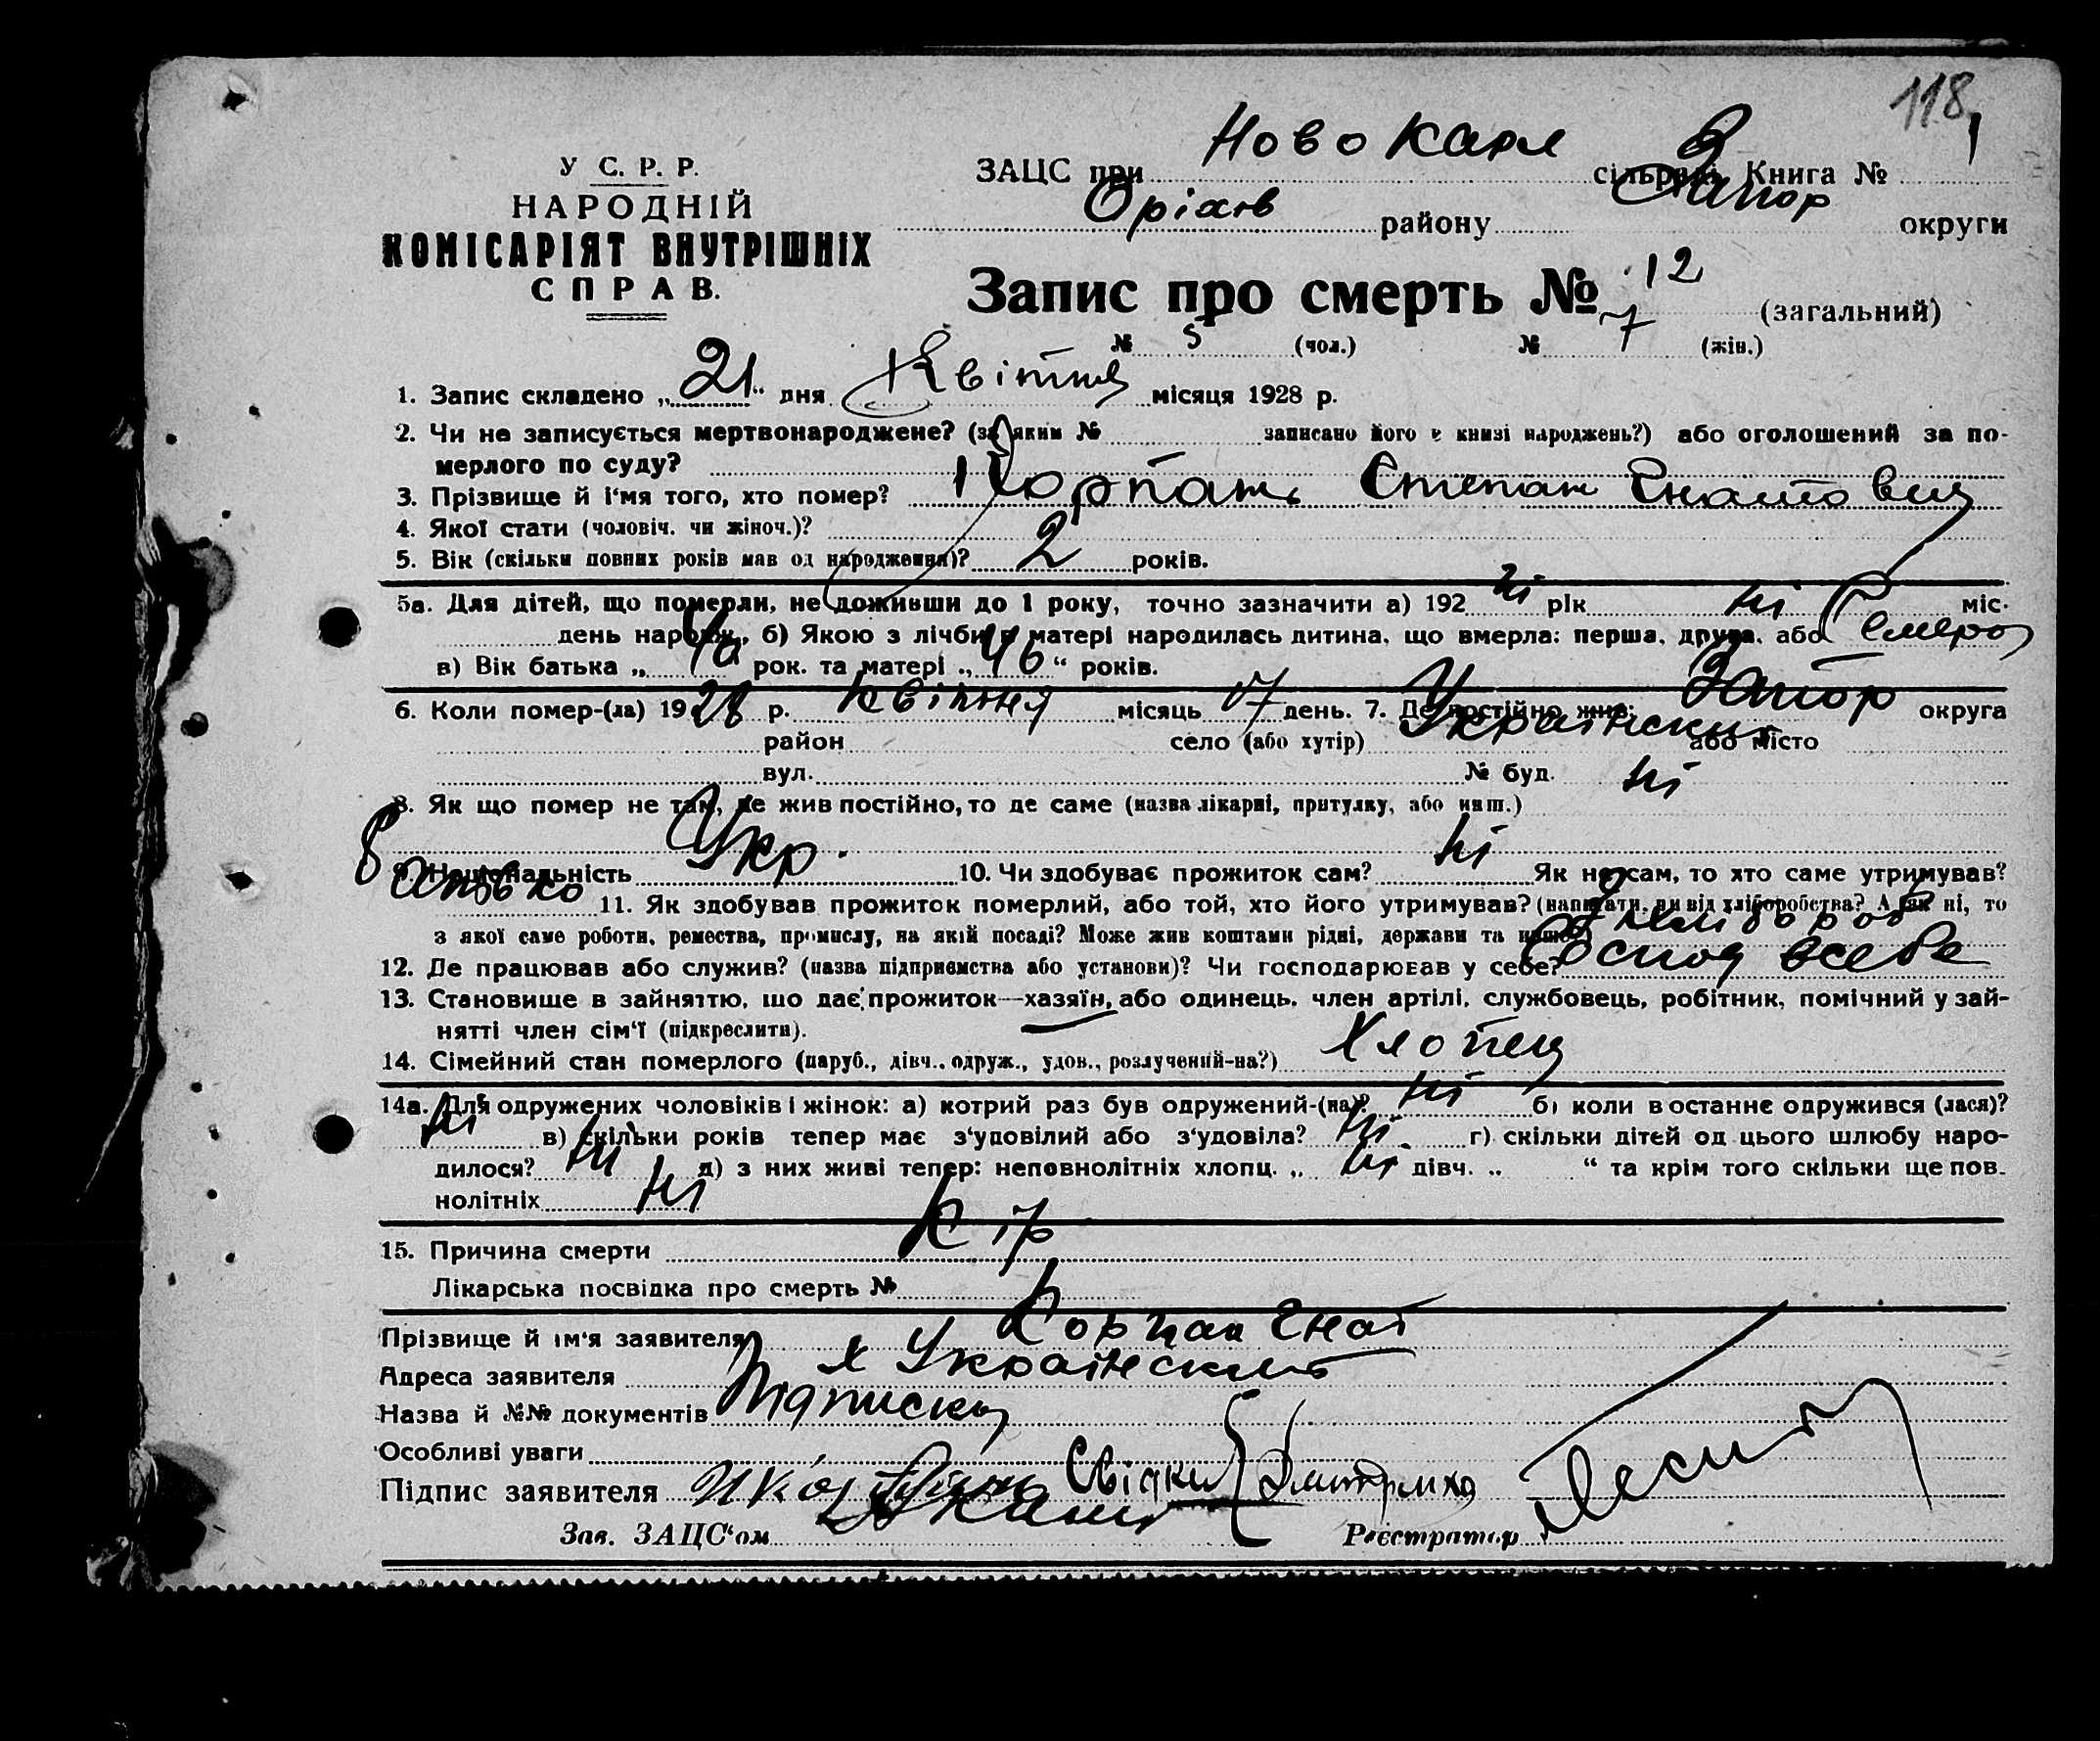 118
У С. Р. Р.
НАРОДНІЙ
КОМІСАРІЯТ ВНУТРІШНІХ
СПРАВ.
ЗАЦС при Ново Карл сільраді Книга № 1
Оріхів району Запор округи
Запис про смерть № 12 (загальний)
№ 5 (чол.) № 7 (жін.)
1. Запис складено „21“ дня Квітня місяця 1928 р.
2. Чи не записується мертвонароджене? (за яким № записано його в книзі народжень?) або оголошений за по-
мерлого по суду?
3. Прізвище й і'мя того, хто помер? Корпань Степан Гнатович
4. Якої стати (чоловіч. чи жіноч.)?
5. Вік (скільки повних років мав од народження)? 2 років.
5а. Для дітей, що померли, не доживши до 1 року, точно зазначити а) 192 ні рік ні міс.
день народж., б) Якою з лічби в матері народилась дитина, що вмерла: перша, друга, або
в) Вік батька „ рок. та матері „46“ років.
6. Коли помер-(ла) 1928 р. Квітня місяць 17 день. 7. Де постійно жив: Запор округа
район село (або хутір) Українский або місто
вул. № буд. ні
8. Як що помер не там, де жив постійно, то де саме (назва лікарні, притулку, або инш.)
9. Національність Укр. 10. Чи здобуває прожиток сам? ні Як не сам, то хто саме утримував?
батько 11. Як здобував прожиток померлий, або той, хто його утримував? (написати, чи від хліборобства? А як ні, то
з якої саме роботи, ремества, промислу, на якій посаді? Може жив коштами рідні, держави та инше) Хлібороб
12. Де працював або служив? (назва підприємства або установи)? Чи господарював у себе? Господ всебе
13. Становище в зайняттю, що дає прожиток—хазяїн, або одинець, член артілі, службовець, робітник, помічний у зай-
нятті член сім'ї (підкреслити).
14. Сімейний стан померлого (паруб., дівч., одруж., удов., розлучений-на?) Хлопец
14а. Для одружених чоловіків і жінок: а) котрий раз був одружений-(на)? ні б) коли в останнє одружився (лася)?
ні в) скільки років тепер має з'удовілий або з'удовіла? ні. г) скільки дітей од цього шлюбу наро-
дилося? ні д) з них живі тепер: неповнолітніх хлопц. „ ні дівч. „ “ та крім того скільки ще пов-
нолітніх ні
15. Причина смерти Кір
Лікарська посвідка про смерть №
Прізвище й ім'я заявителя Корпан Гнат
Адреса заявителя х Українский
Назва й №№ документів Підписка
Особливі уваги
Підпис заявителя Свідки
Зав. ЗАЦС'ом Реєстратор